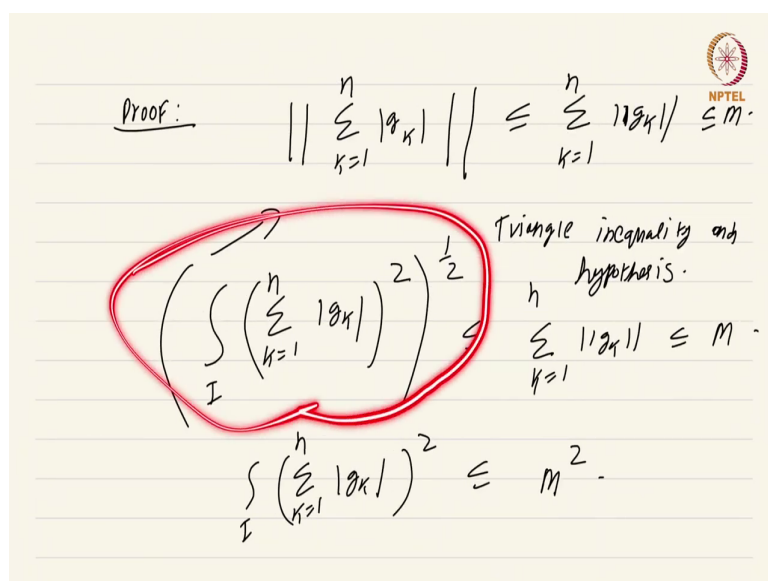 NPTEL
Proof: || n Σ k=1 |g_k| || ≤ n Σ k=1 ||g_k|| ≤ M.
Triangle inequality and
hypothesis.
⇒ ( ∫_I ( n Σ k=1 |g_k| )^2 )^1/2 ≤ n Σ k=1 ||g_k|| ≤ M.
∫_I ( n Σ k=1 |g_k| )^2 ≤ M^2.